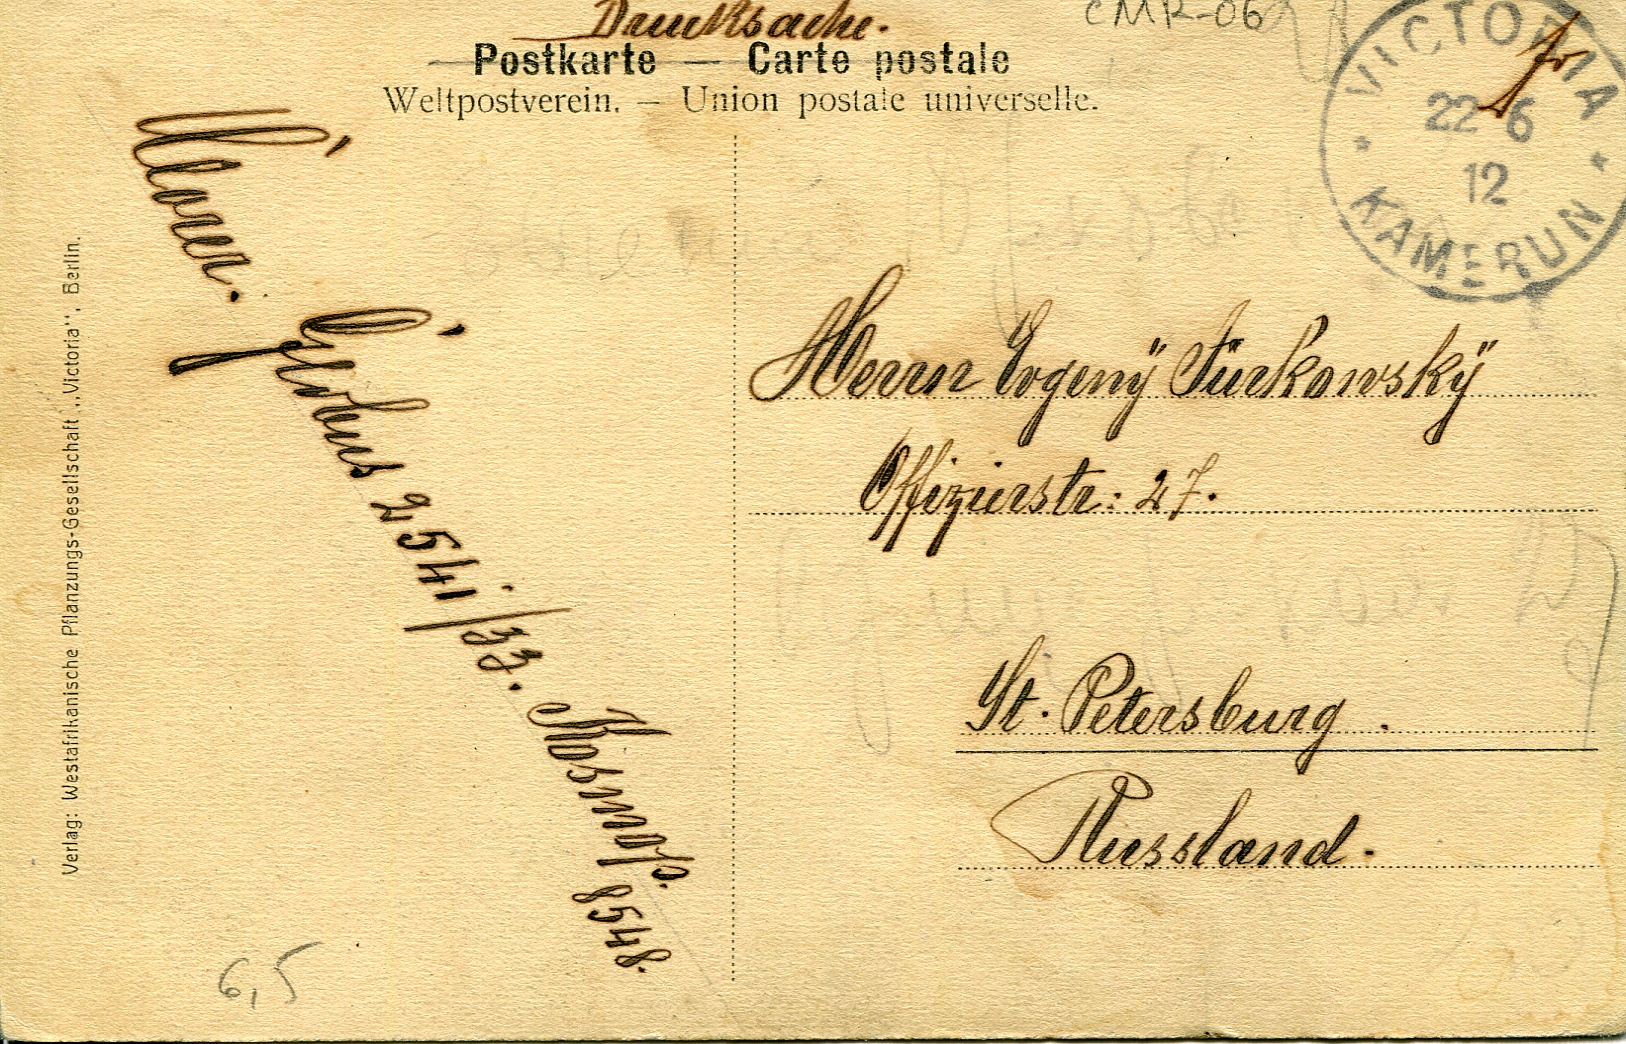 Drucksache.
CMR-06
Postkarte — Carte postale
Weltpostverein. — Union postale universelle.
VICTORIA
22 6
12
KAMERUN
Globus 2541/33. Kosmop. 8548.
Herrn Evgenÿ Turkowskÿ
Offizierstr: 27.
St. Petersburg.
Russland.
Verlag: Westafrikanische Pflanzungs-Gesellschaft „Victoria“, Berlin.
6,5